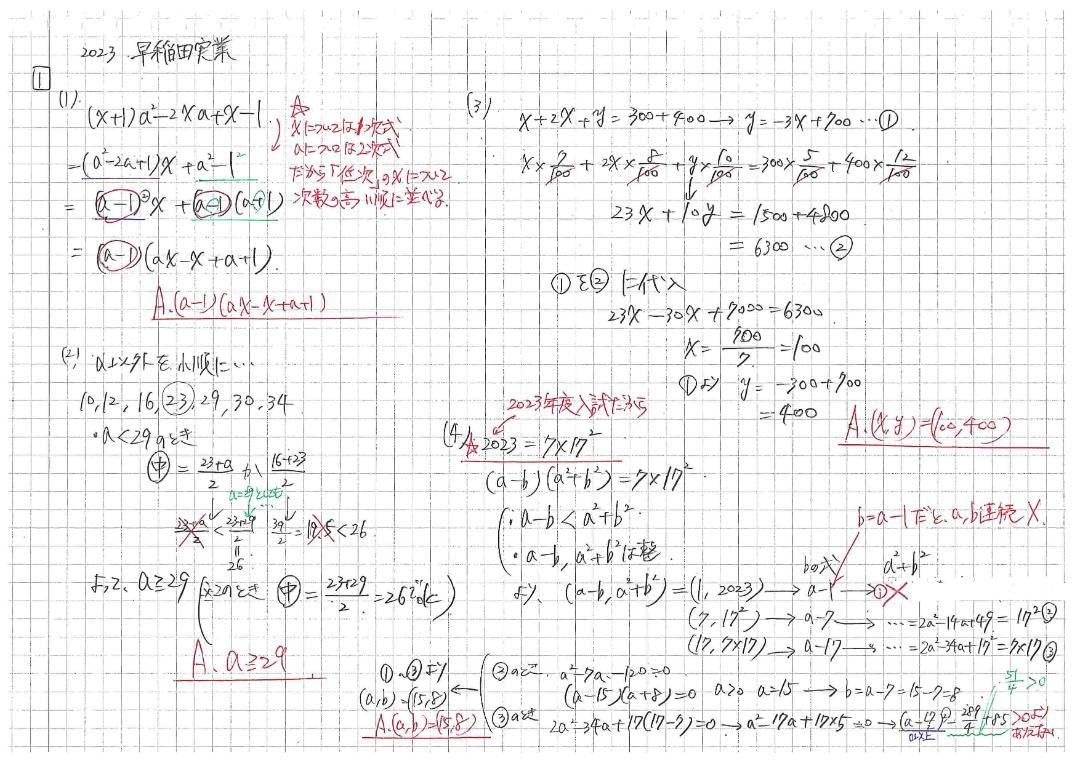 2023 早稲田実業
1
(1).
(x+1)a²-2xa+x-1
=(a²-2a+1)x+a²-1²
=(a-1)²x+(a-1)(a+1)
=(a-1)(ax-x+a+1).
A.(a-1)(ax-x+a+1)
☆
xについては1次式
aについては2次式
だから「低次」のxについて
次数の高い順に並べる.
(2)
a以外を小順に…
10,12,16,23,29,30,34
・a<29のとき
中=23+a/2か16+23/2
a=29としても…
23+a/2<23+29/2 39/2=19.5<26
=
26
よって、a≧29
(a≧29のとき 中=23+29/2=26でok)
A. a≧29
(3)
x+2x+y=300+400→y=-3x+700…①
x×7/100+2x×8/100+y×10/100=300×5/100+400×12/100
23x+10y=1500+4800
=6300…②
①を②に代入
23x-30x+7000=6300
x=700/7=100
①より y=-300+700
=400
A.(x,y)=(100,400)
2023年度入試だから
(4)
☆2023=7×17²
(a-b)(a²+b²)=7×17²
・a-b<a²+b²
・a-b,a²+b²は整
b=a-1だと、a,b連続×
bの式 a²+b²
より、(a-b,a²+b²)=(1,2023)→a-1→①×
(7,17²)→a-7→…=2a²-14a+49=17²②
(17,7×17)→a-17→…=2a²-34a+17²=7×17③
②のとき a²-7a-120=0
(a-15)(a+8)=0 a>0 a=15→b=a-7=15-7=8
③のとき 2a²-34a+17(17-7)=0→a²-17a+17×5=0→(a-17/2)²-289/4+85>0より
0以上
51/4>0
①~③より
(a,b)=(15,8)
A.(a,b)=(15,8)